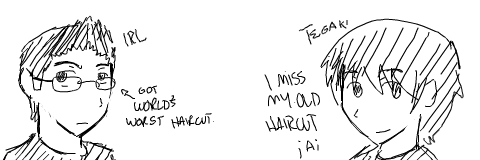 IRL
GOT
WORLD'S
WORST HAIRCUT.
TEGAKI
I MISS
MY OLD
HAIRCUT
;A;